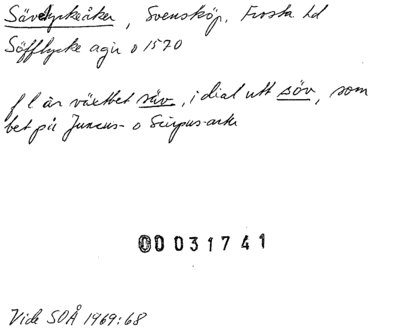 Sävelyckeåker, Svensköp, Frosta hd
Söfflycke agir o 1570
f l är växtbet säv, i dial utt söv, som
bet på Juncus- o Scirpus-arter
00031741
Vide SOÅ 1969:68